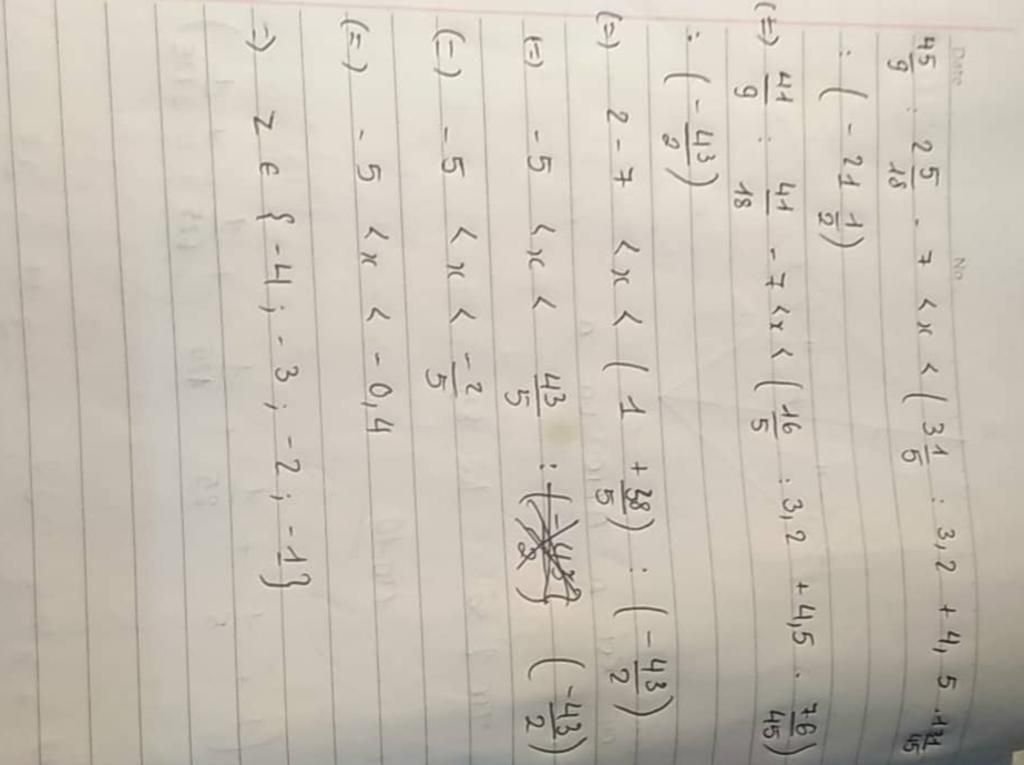 Date No
45/9 : 2 5/18 - 7 < x < ( 3 1/5 : 3,2 + 4,5 . 1 31/45
: ( - 21 1/2 )
(=) 41/9 : 41/18 - 7 < x < ( 16/5 : 3,2 + 4,5 . 76/45 )
: ( - 43/2 )
(=) 2 - 7 < x < ( 1 + 38/5 ) : ( - 43/2 )
(=) - 5 < x < 43/5 : ( -43/2 )
(=) - 5 < x < -2/5
(=) - 5 < x < - 0,4
=) Z ∈ { -4 ; -3 ; -2 ; -1 }